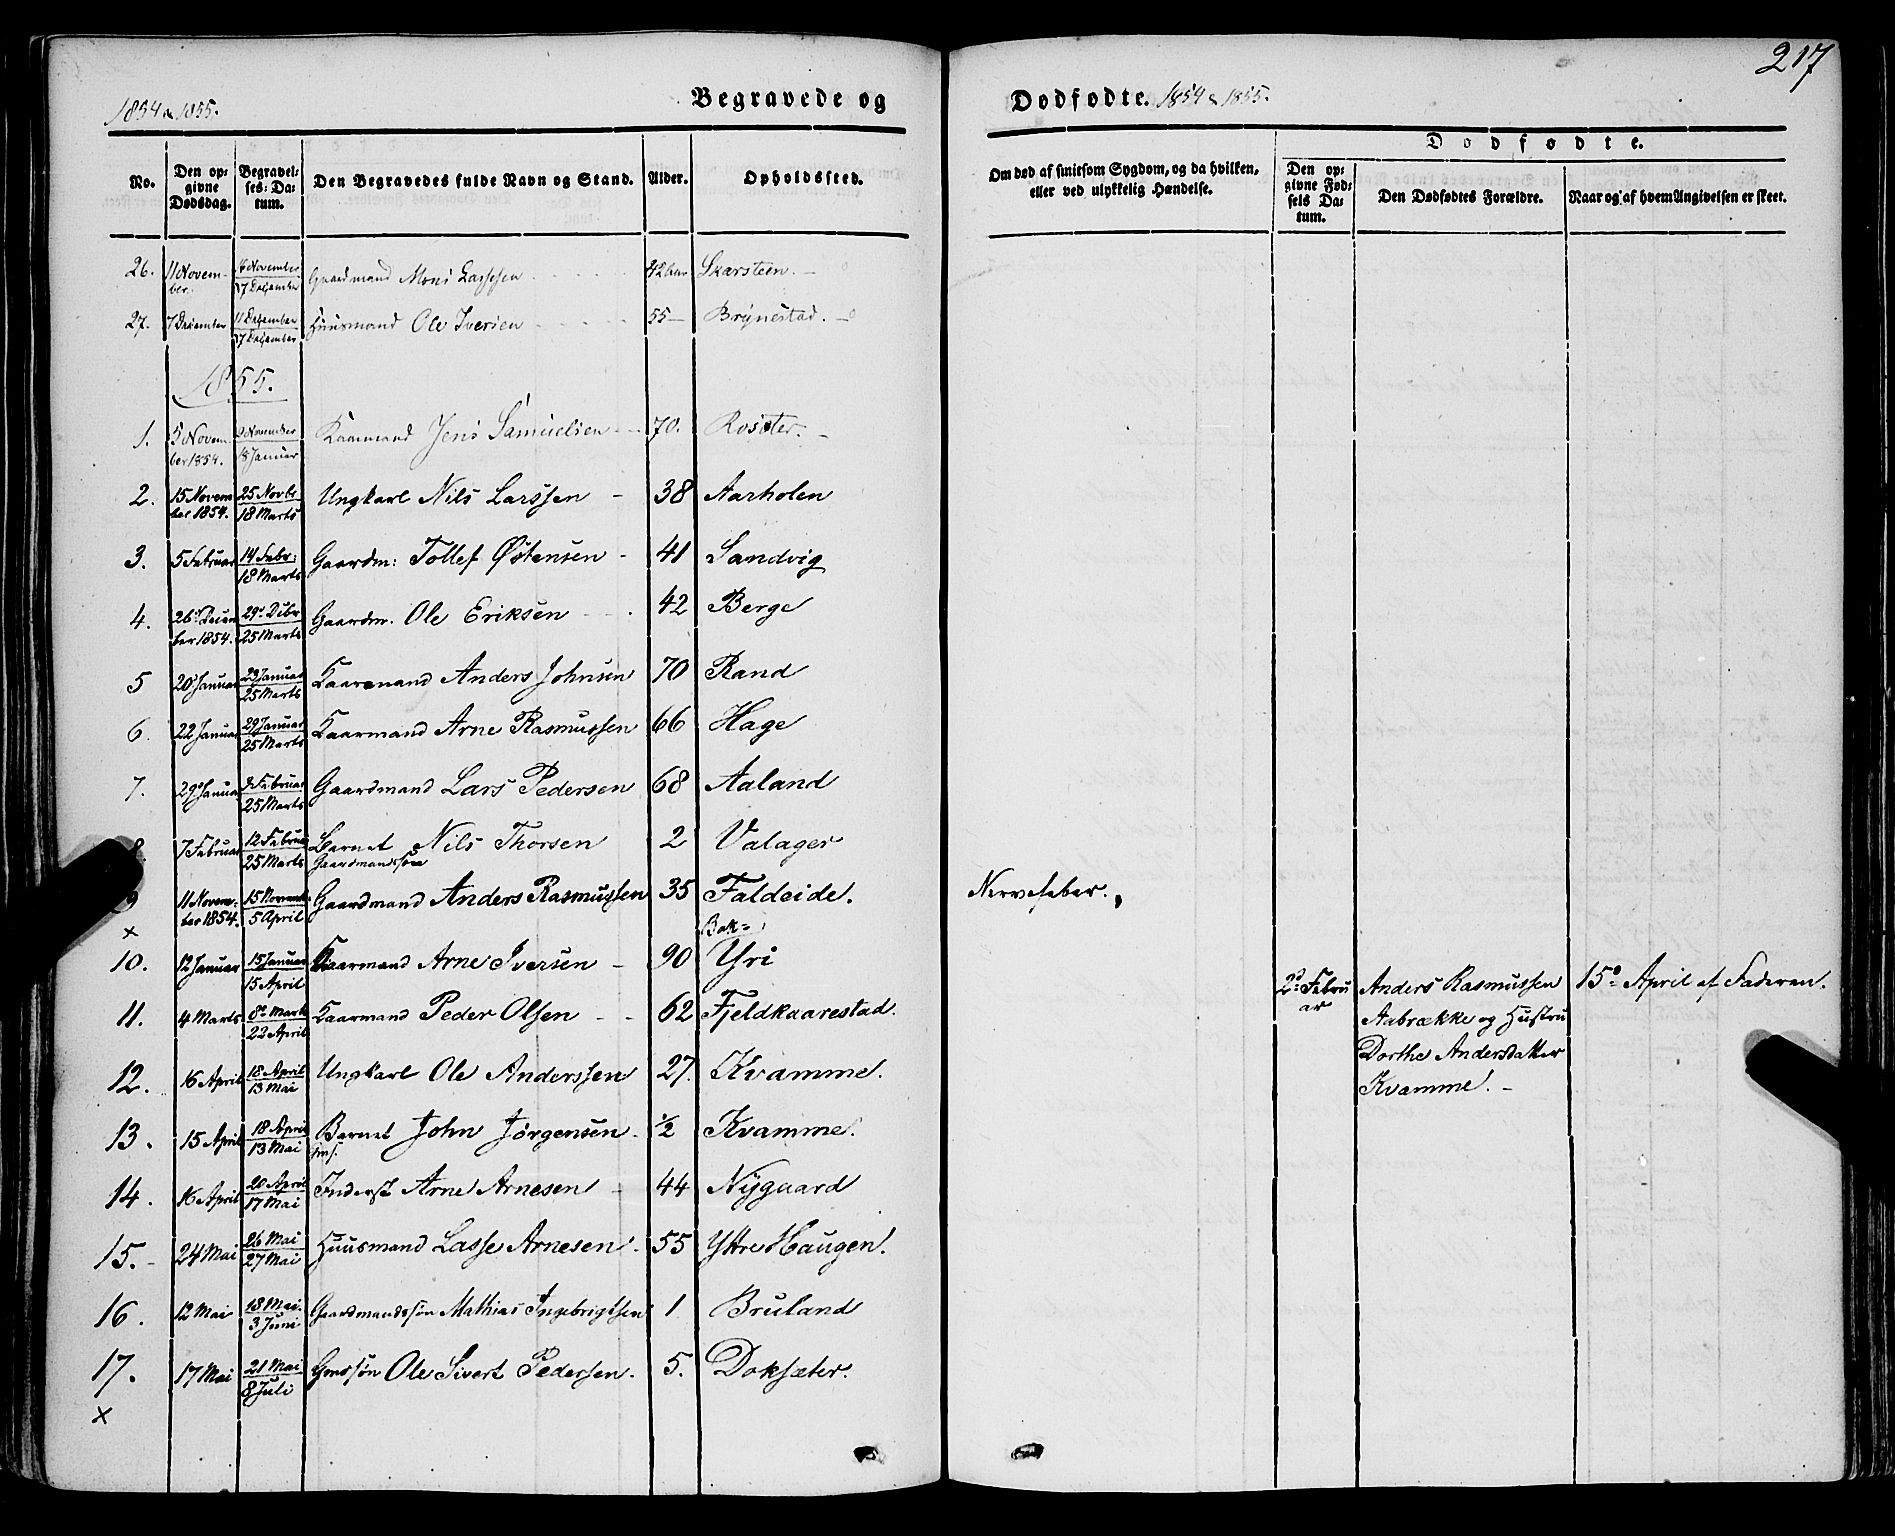 217
1854 & 1855.
Begravede og
Dødfødte. 1854 & 1855.
No.
Den op-
givne
Dødsdag.
Begravel-
ses-Da-
tum.
Den Begravedes fulde Navn og Stand.
Alder.
Opholdssted.
Om død af smitsom Sygdom, og da hvilken,
eller ved ulykkelig Hændelse.
Dødfødte.
Den op-
givne Fød-
sels Da-
tum.
Den Dødfødtes Forældre.
Naar og af hvem Angivelsen er skeet.
26. 11 Novem-
ber. 16 November
17 December Gaardmand Mons Lassesen 42 Skarsteen.
27. 7 December 11 December
17 December Huusmand Ole Iversen 55 Brynestad.
1855.
1. 5 Novem-
ber 1854. 9 November
18 Januar Kaarmand Jens Samuelsen 70. Rosæter.
2. 15 Novem
ber 1854. 25 Novbr
18 Marts Ungkarl Nils Larssen 38 Aarholen
3. 5 Februar 14 Febr:
18 Marts Gaardm: Tollef Østensen 41 Sandvig
4. 26 Decem
ber 1854. 29 Dcbr
25 Marts Gaardm. Ole Eriksen 42 Berge
5 20 Januar 29 Januar
25 Marts Kaarmand Anders Johnsen 70 Rand
6. 22 Januar 29 Januar
25 Marts Kaarmand Arne Rasmussen 66 Hage
7. 29 Januar 2 Februar
25 Marts Gaardmand Lars Pedersen 68 Aaland
8. 7 Februar 12 Februar
25 Marts Barnet Nils Thorsen 2 Valager
Gaardmandssøn
9 11 Novem-
ber 1854. 15 Novemb.
5 April Gaardmand Anders Rasmussen 35 Faldeide. Nervefeber.
x
Bak-
10. 12 Januar 15 Januar
15 April Kaarmand Arne Iversen 90 Yri
2d Febru
ar Anders Rasmussen
Aabrække og Hustru
Dorthe Andersdatter
Kvamme. 15de April af Faderen.
11. 4 Marts 8de Marts
22 April Kaarmand Peder Olsen 62 Fjeldkaarestad.
12. 16 April 18 April
13 Mai Ungkarl Ole Anderssen 27. Kvamme.
13. 15 April 18 April
13 Mai Barnet John Jørgensen. 1/2 Kvamme.
14. 16 April 20 April
17 Mai Inderst Arne Arnesen 44 Nygaard
15. 24 Mai 26 Mai
27 Mai Huusmand Lasse Arnesen. 55 Yttre Haugen.
16. 12 Mai 18 Mai.
3 Juni Gaardmandssøn Mathias Ingebrigtsen 1 Bruland
17. 17 Mai 21 Mai
8 Juli Gmdssøn Ole Sivert Pedersen. 5. Doksæter.
x